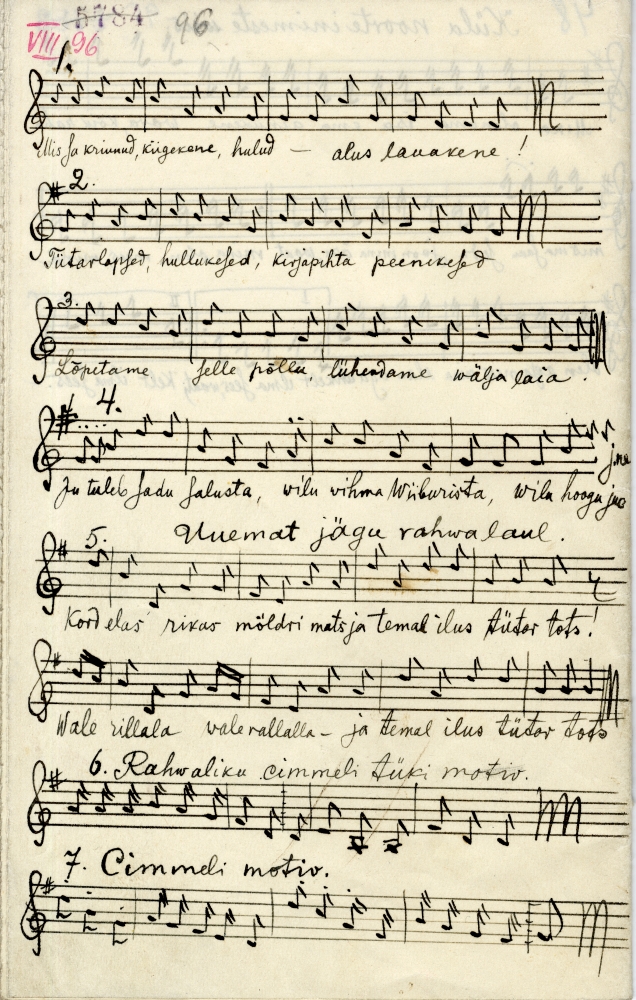 5784 96
VIII, 96
1.
kriuud, kiigekene, hulud — alus lauakene!
2.
Tütarlapsed, hullukesed, kirjapihta peenikesed
3.
Lõpetame selle põllu lühendame wälja laia.
4.
Ju tuleb sadu salusta, wilu vihma Wiiburista, wilu hoogu
5. Uuemat jägu rahwalaul.
Kord elas rikas möldri mats ja temal ilus tütar tots!
Wale rillala valerallalla - ja temal ilus tütar tots
6. Rahwaliku cimmeli tüki motiv.
7. Cimmeli motiv.